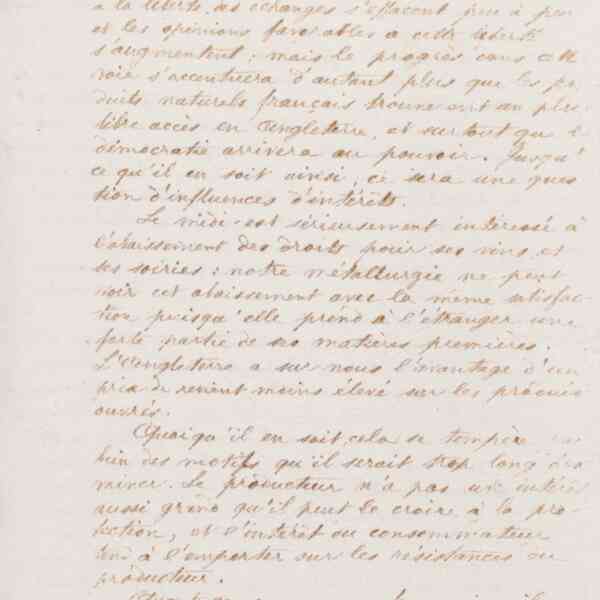 à la liberté des échanges s'effacent peu à peu
et les opinions favorables à cette liberté
s'augmentent; mais le progrès dans cette
voie s'accentuera d'autant plus que les pro
duits naturels français trouveront un plus
libre accès en Angleterre, et surtout que la
démocratie arrivera au pouvoir. Jusqu'
ce qu'il en soit ainsi, ce sera une ques
tion d'influences d'intérêts.
Le midi est sérieusement intéressé à
l'abaissement des droits pour ses vins et
ses soiries: notre métallurgie ne peut
voir cet abaissement avec la même satisfac-
tion puisqu'elle prend à l'étranger une
forte partie de ses matières premières.
L'Angleterre a sur nous l'avantage d'un
prix de revient moins élevé sur les produits
ouvrés.
Quoiqu'il en soit, cela se tempère
bien des motifs qu'il serait trop long d'exa
miner. Le producteur n'a pas un intérêt
aussi grand qu'il peut le croire à la pro-
tection, et l'intérêt du consommateur
tend à l'emporter sur les résistances du
producteur.